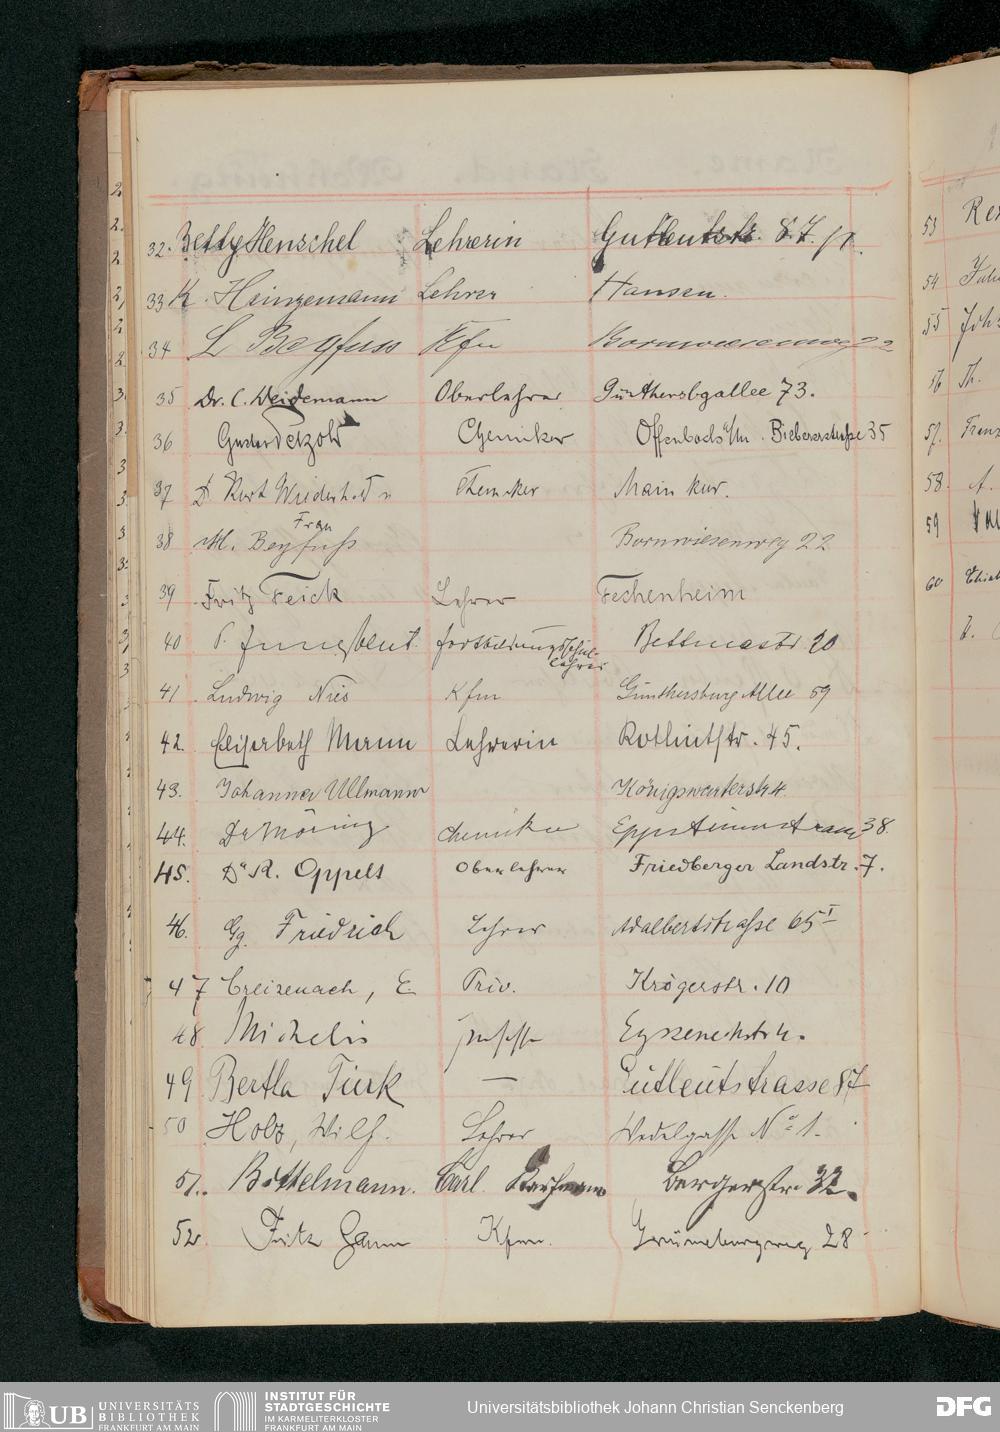 32. Betty Henschel Lehrerin Gutleutstr. 87. II.
33 K. Heinzemann Lehrer Hansen.
34 L Beyfuss Kfm Bornwiesenweg 22
35 Dr. C. Weidemann Oberlehrer Günthersbgallee 73.
36 Gustav Petzold Chemiker Offenbach a/M. Biebererstraße 35
37 Dr Kurt Wiederhold Chemiker Mainkur.
38 Frau
M. Beyfuß Bornwiesenweg 22
39 Fritz Feick Lehrer Fechenheim
40 P. Jungblut. Fortbildungsschul-
lehrer Bethmastr 20
41 Ludwig Nies Kfm Günthersburg Allee 59
42. Elisabeth Mann Lehrerin Rotlintstr. 45.
43. Johanna Ullmann Königswarterstr 4.
44. Dr Möring Chemiker Eppsteinerstrasse 38.
45. Dr R. Oppels Oberlehrer Friedberger Landstr. 7.
46. Gg. Friedrich Lehrer Adalbertstraße 65 I
47 Creizenach, E Priv. Krögerstr. 10
48. Michelis Eyssenechstr 4.
49 Bertha Türk — Gutleutstrasse 87
50 Holz, Wilh. Lehrer Wedelgasse No 1.
51. Bottelmann. Carl. Kaufmann Bergerstr. 32.
52. Fritz Kfm. Grüneburgweg 28
53
54
55 Joh
56 Th.
57. Franz
58.
59
60
UB UNIVERSITÄTS
BIBLIOTHEK
FRANKFURT AM MAIN
INSTITUT FÜR
STADTGESCHICHTE
IM KARMELITERKLOSTER
FRANKFURT AM MAIN
Universitätsbibliothek Johann Christian Senckenberg
DFG